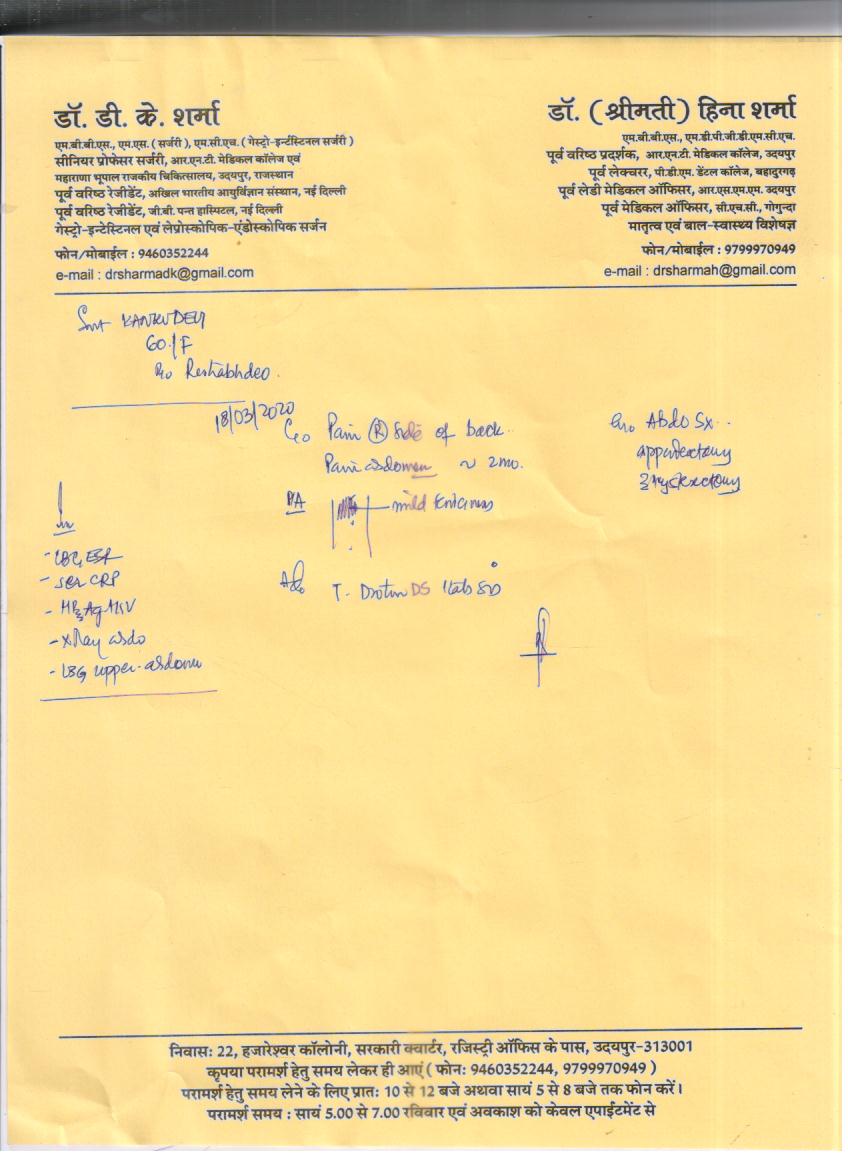 डॉ. डी. के. शर्मा
एम.बी.बी.एस., एम.एस. ( सर्जरी ), एम.सी.एच. ( गेस्ट्रो-इन्टेंस्टिनल सर्जरी )
सीनियर प्रोफेसर सर्जरी, आर.एन.टी. मेडिकल कॉलेज एवं
महाराणा भूपाल राजकीय चिकित्सालय, उदयपुर, राजस्थान
पूर्व वरिष्ठ रेजीडेंट, अखिल भारतीय आयुर्विज्ञान संस्थान, नई दिल्ली
पूर्व वरिष्ठ रेजीडेंट, जी.बी. पन्त हास्पिटल, नई दिल्ली
गेस्ट्रो-इन्टेस्टिनल एवं लेप्रोस्कोपिक-एंडोस्कोपिक सर्जन
फोन/मोबाईल : 9460352244
e-mail : drsharmadk@gmail.com
डॉ. (श्रीमती) हिना शर्मा
एम.बी.बी.एस., एम.डी.पी.जी.डी.एम.सी.एच.
पूर्व वरिष्ठ प्रदर्शक, आर.एन.टी. मेडिकल कॉलेज, उदयपुर
पूर्व लेक्चरर, पी.डी.एम. डेंटल कॉलेज, बहादुरगढ़
पूर्व लेडी मेडिकल ऑफिसर, आर.एस.एम.एम. उदयपुर
पूर्व मेडिकल ऑफिसर, सी.एच.सी., गोगुन्दा
मातृत्व एवं बाल-स्वास्थ्य विशेषज्ञ
फोन/मोबाईल : 9799970949
e-mail : drsharmah@gmail.com
Smt KANKU DEVI
60/F
R/o Reshabhdeo.
18/03/2020
C/o Pain (R) side of back
Pain abdomen ~ 2mo.
H/o Abdo Sx
P/A mild
- CBC, ESR
- Ser CRP
- HBsAg HIV
- X Ray abdo
- USG upper-abdomen
Adv T. Drotin DS 1 tab
निवास: 22, हजारेश्वर कॉलोनी, सरकारी क्वार्टर, रजिस्ट्री ऑफिस के पास, उदयपुर-313001
कृपया परामर्श हेतु समय लेकर ही आएं ( फोन: 9460352244, 9799970949 )
परामर्श हेतु समय लेने के लिए प्रातः 10 से 12 बजे अथवा सायं 5 से 8 बजे तक फोन करें।
परामर्श समय : सायं 5.00 से 7.00 रविवार एवं अवकाश को केवल एपाईटमेंट से